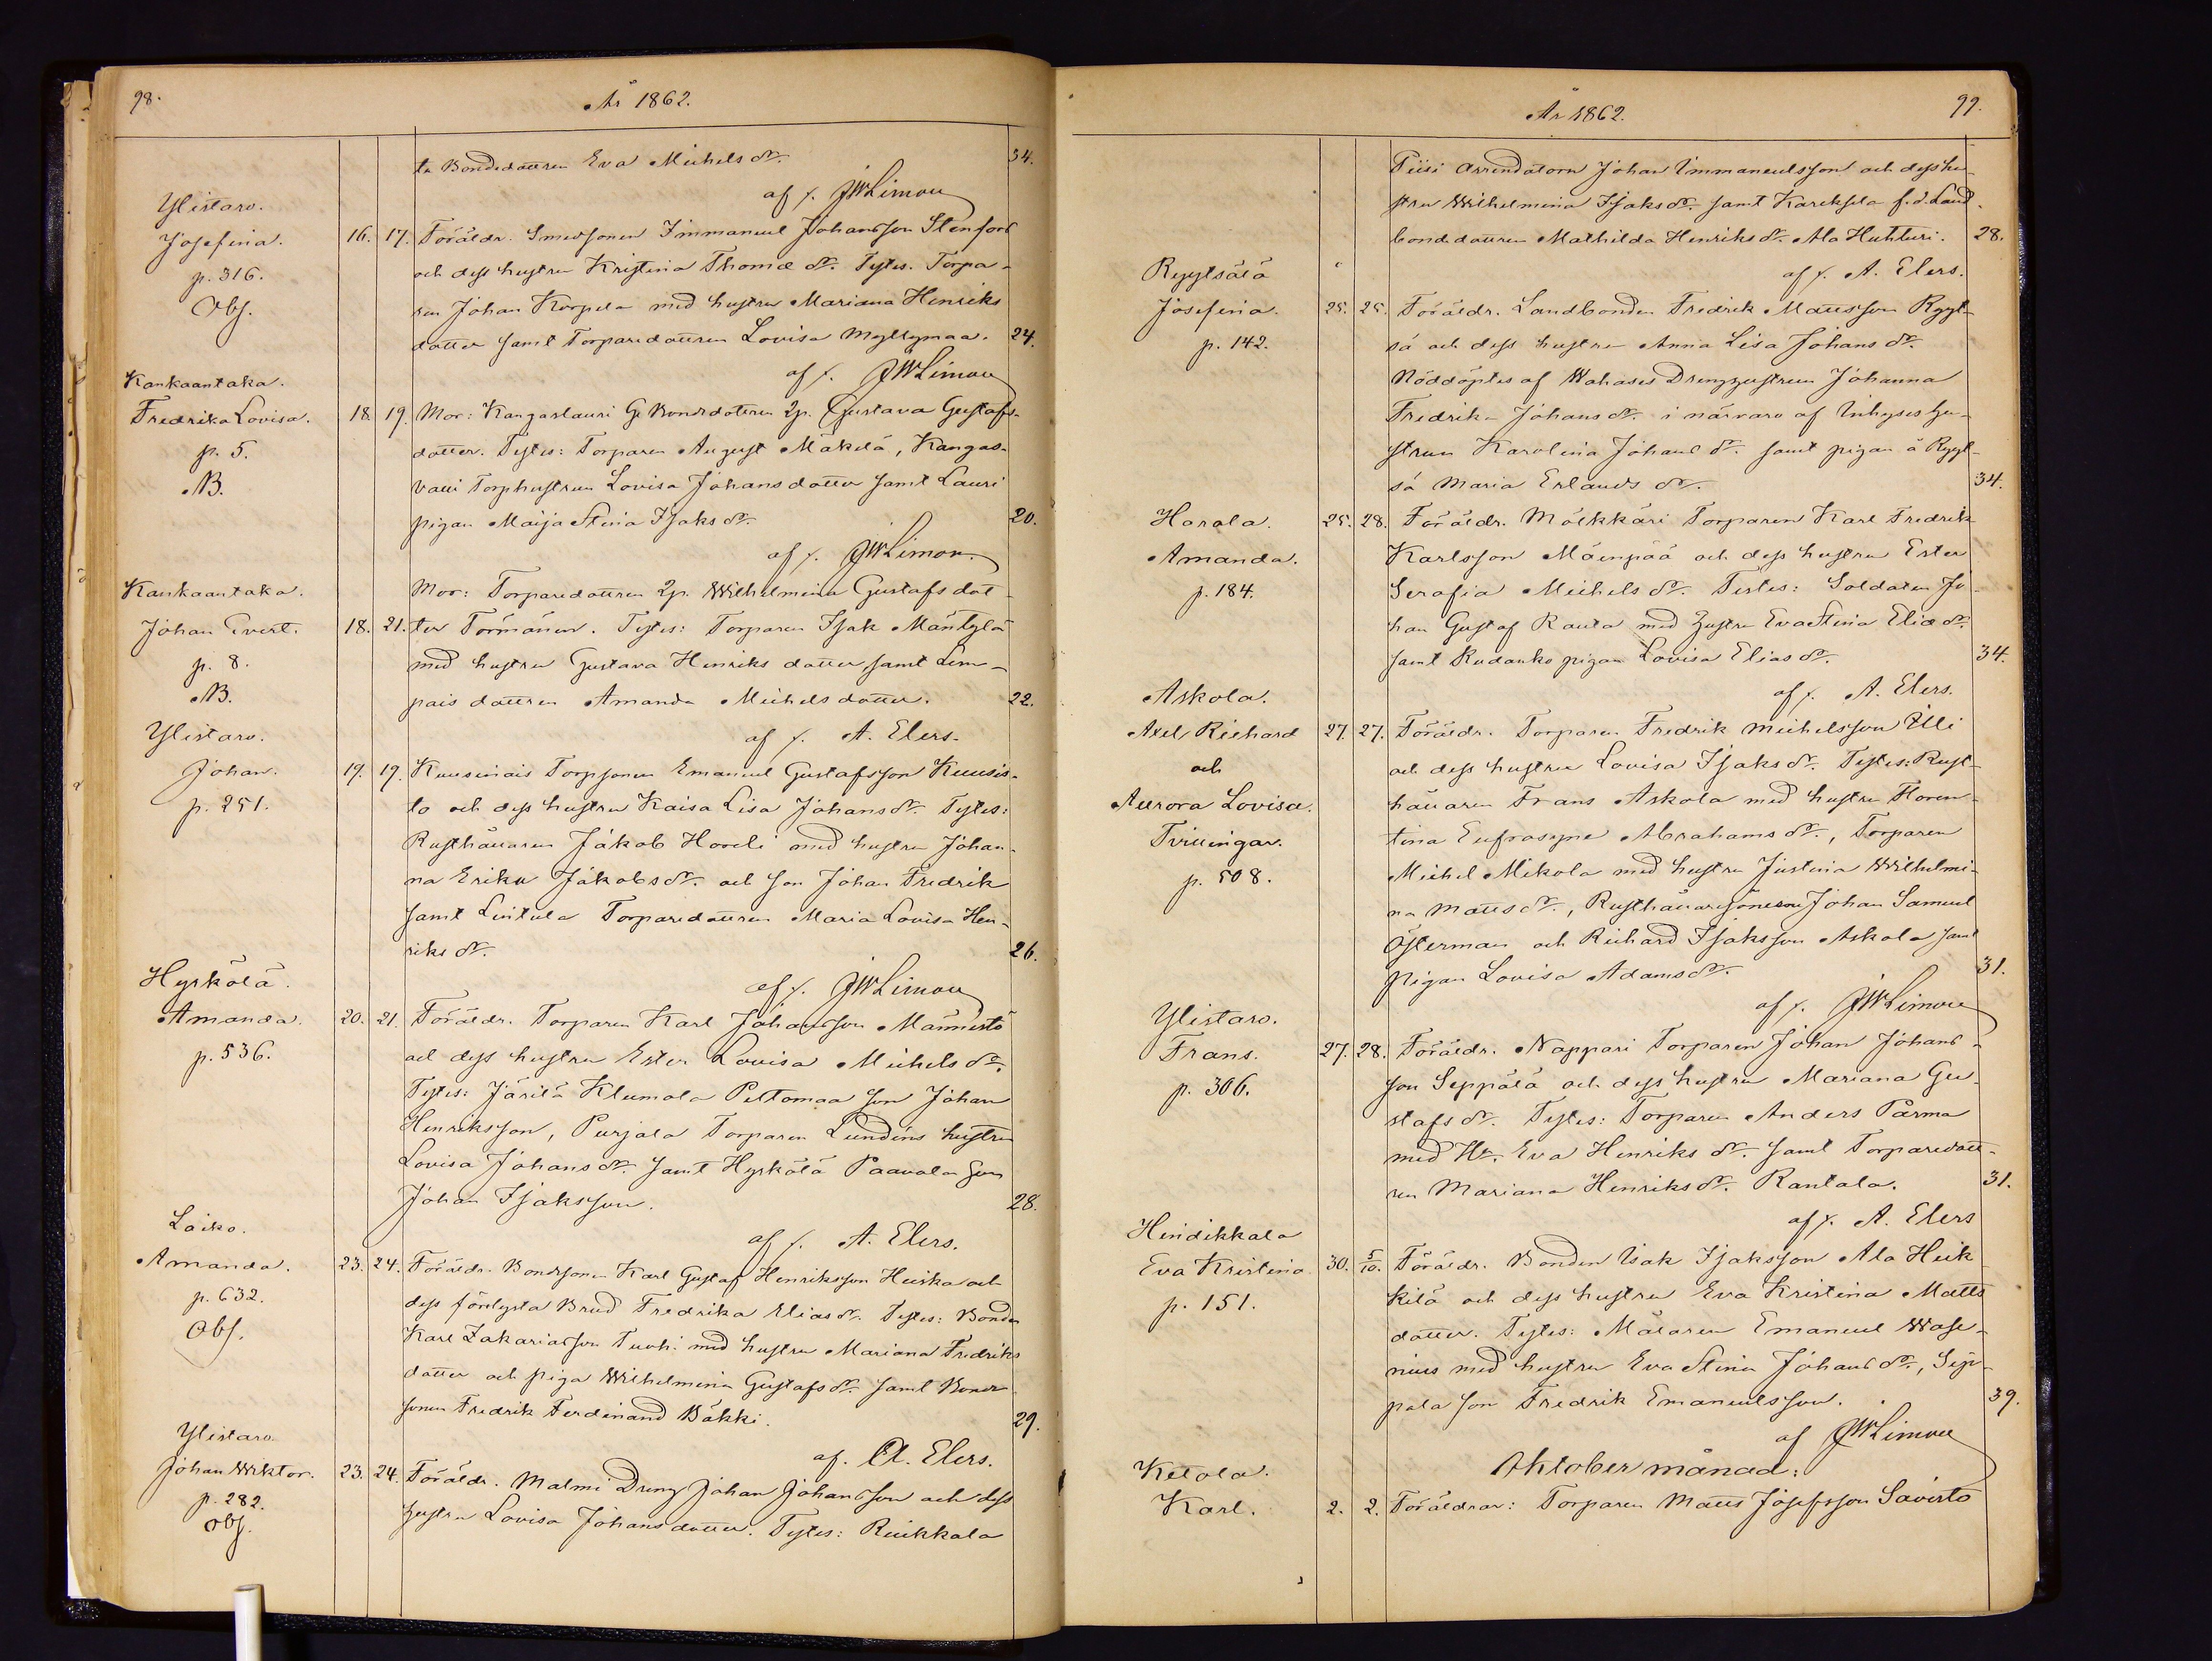 98.
År 1862.
ta Bondedottren Eva Michels dr. 34.
af f. JWLimon
Ylistaro.
Josefina. 16. 17. Föräldr. Smedsonen Immanuel Johansson Stenfors
p. 316. och dess hustru Kristina Thomæ dr. Testes. Torpa-
Obs. ren Johan Korpela med hustru Mariana Henriks
dotter samt Torparedottren Lovisa Myllymaa. 24.
af f. JWLimon
Kankaantaka.
Fredrika Lovisa. 18. 19. Mor: Kangaslauri G. Bondedottren Gustava Gustafs-
p. 5. dotter. Testes: Torparen August Mäkelä, Kangas-
B. Torphustrun Lovisa Johans dotter samt Lauri
pigan Maija Stina Isaks dr. 20.
af f. JWLimon
Kankaantaka. Mor: Torparedottren Wilhelmina Gustafs dot-
Johan Evert. 18. 21. ter Törmänen. Testes: Torparen Isak Mäntylä
p. 8. med hustru Gustava Henriks dotter samt Lem-
B. pais dottren Amanda Michels dotter. 22.
Ylistaro. af f. A. Elers.
Johan. 19. 19. Kuusinais Torpsonen Emanuel Gustafsson Kuusis-
p. 251. to och dess hustru Kaisa Lisa Johans dr. Testes:
Rusthållaren Jakob Horeli med hustru Johan-
na Erika Jakobs dr. och son Johan Fredrik
samt Lintula Torparedottren Maria Lovisa Hen-
riks dr. 26.
Hyrkölä. af f. JWLimon
Amanda. 20. 21. Föräldr. Torparen Karl Johansson Männistö
p. 536. och dess hustru Ester Lovisa Michels dr.
Testes: Järilä Kleemola Peltomaa son Johan
Henriksson, Purjala Torparen Lundéns hustru
Lovisa Johans dr. samt Hyrkölä Paavola son
Johan Isaksson. 28.
Laiko. af f. A. Elers.
Amanda. 23. 24. Föräldr. Bondsonen Karl Gustaf Henriksson Heiska och
p. 632. dess förelysta Brud Fredrika Elias dr. Testes: Bonden
Obs. Karl Zakariasson Tuohi med hustru Mariana Fredriks
dotter och piga Wilhelmina Gustafs dr. samt Bonde
sonen Fredrik Ferdinand Bäkki. 29.
Ylistaro af. A. Elers.
Johan Wiktor. 23. 24. Föräldr. Malmi Dreng Johan Johansson och dess
p. 282. hustru Lovisa Johans dotter. Testes: Ruikkala
Obs.
År 1862.
99.
Piisi Arrendatorn Johan Immanuelsson och dess hu-
stru Wilhelmina Isaks dr. samt Kareksela f.d. Land-
bondedottren Mathilda Henriks dr. Ala Huhturi. 28.
Ryytsälä af f. A. Elers.
Josefina. 25. 25. Föräldr. Landbonden Fredrik Mattsson Ryyt-
p. 142. sä och dess hustru Anna Lisa Johans dr.
Nöddöptes af Wahases Drenghustrun Johanna
Fredrika Johans dr. i närvaro af Inhyses hu-
strun Karolina Johans dr. samt pigan å Ryyt-
sä Maria Erlands dr. 34.
Harola. 25. 28. Föräldr. Mölkkäri Torparen Karl Fredrik
Amanda. Karlsson Mäenpää och dess hustru Ester
p. 184. Serafia Michels dr. Testes: Soldaten Jo-
han Gustaf Rauta med hustru Eva Stina Eliæ dr.
samt Rudanko pigan Lovisa Elias dr. 34.
Askola. af f. A. Elers.
Axel Richard 27. 27. Föräldr. Torparen Fredrik Michelsson Ylli
och och dess hustru Lovisa Isaks dr. Testes: Rust-
Aurora Lovisa. hållaren Frans Askola med hustru Floren-
Tvillingar. tina Eufrosyne Abrahams dr., Torparen
p. 508. Michel Mikola med hustru Justina Wilhelmi-
na Matts dr., Rusthållaresönerne Johan Samuel
Österman och Richard Isaksson Askola samt
pigan Lovisa Adams dr. 31.
Ylistaro. af f. JWLimon
Frans. 27. 28. Föräldr. Nappari Torparen Johan Johans-
p. 306. son Seppälä och dess hustru Mariana Gu-
stafs dr. Testes: Torparen Anders Parma
med Hu. Eva Henriks dr. samt Torparedott-
ren Mariana Henriks dr. Rantala. 31.
Hindikkala af f. A. Elers
Eva Kristina. 30. 5/10. Föräldr. Bonden Isak Isaksson Ala Heik-
p. 151. kilä och dess hustru Eva Kristina Matts
dotter. Testes: Målaren Emanuel Wase-
nius med hustru Eva Stina Johans dr., Sep-
pala son Fredrik Emanuelsson. 39.
af JWLimon
Oktober månad:
Ketola.
Karl. 2. 2. Föräldrar: Torparen Matts Josefsson Savisto